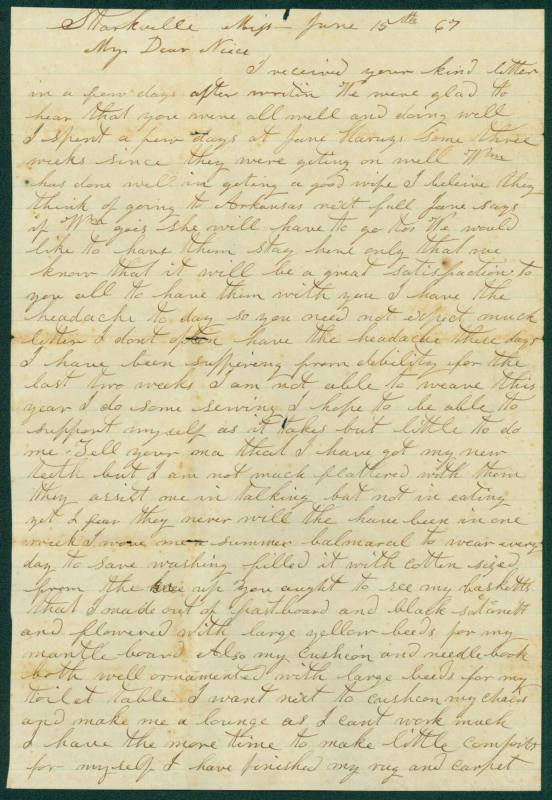 Starkville Miss June 15th 67
My Dear Niece
I received your kind letter
in a few days after writin We were glad to
hear that you were all well and doing well
I spent a few days at Jane Harvys some three
weeks since they were geting on well Wm
has done well in geting a good wife I beleive they
think of going to Arkansas next fall Jane says
if Wm gois she will have to go too We would
like to have them stay here only that we
know that it will be a great satisfaction to
you all to have them with you I have the
headache to day so you need not expect much
letter I dont often have the headache these days
I have been suffering from debility for the
last two weeks I am not able to weave this
year I do some sewing I hope to be able to
support myself as it takes but little to do
me. Tell your ma that I have got my new
teeth but I am not much flattered with them
they assist me in talking but not in eating
yet I fear they never will the have been in one
week I wove me a summer balmaral to wear every
day to save washing filled it with cotten sized
from the up you aught to see my basketts
that I made out of pastboard and black satinett
and flowered with large yellow beeds for my
mantle board Also my cushion and needle book
both well ornamented with large beeds for my
toilet table I want next to cusheon my chairs
and make me a lounge as I cant work much
I have the more time to make little comforts
for myself I have finished my rug and carpet